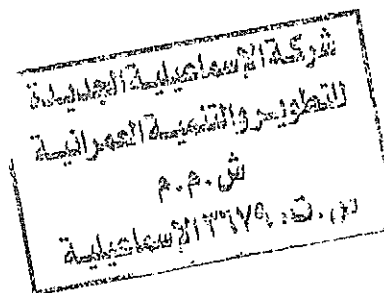 شركة الإسماعيلية الجديدة
للتطوير والتنمية العمرانية
ش.م.م
س.ت. ٣٦٧٥٠ الإسماعيلية